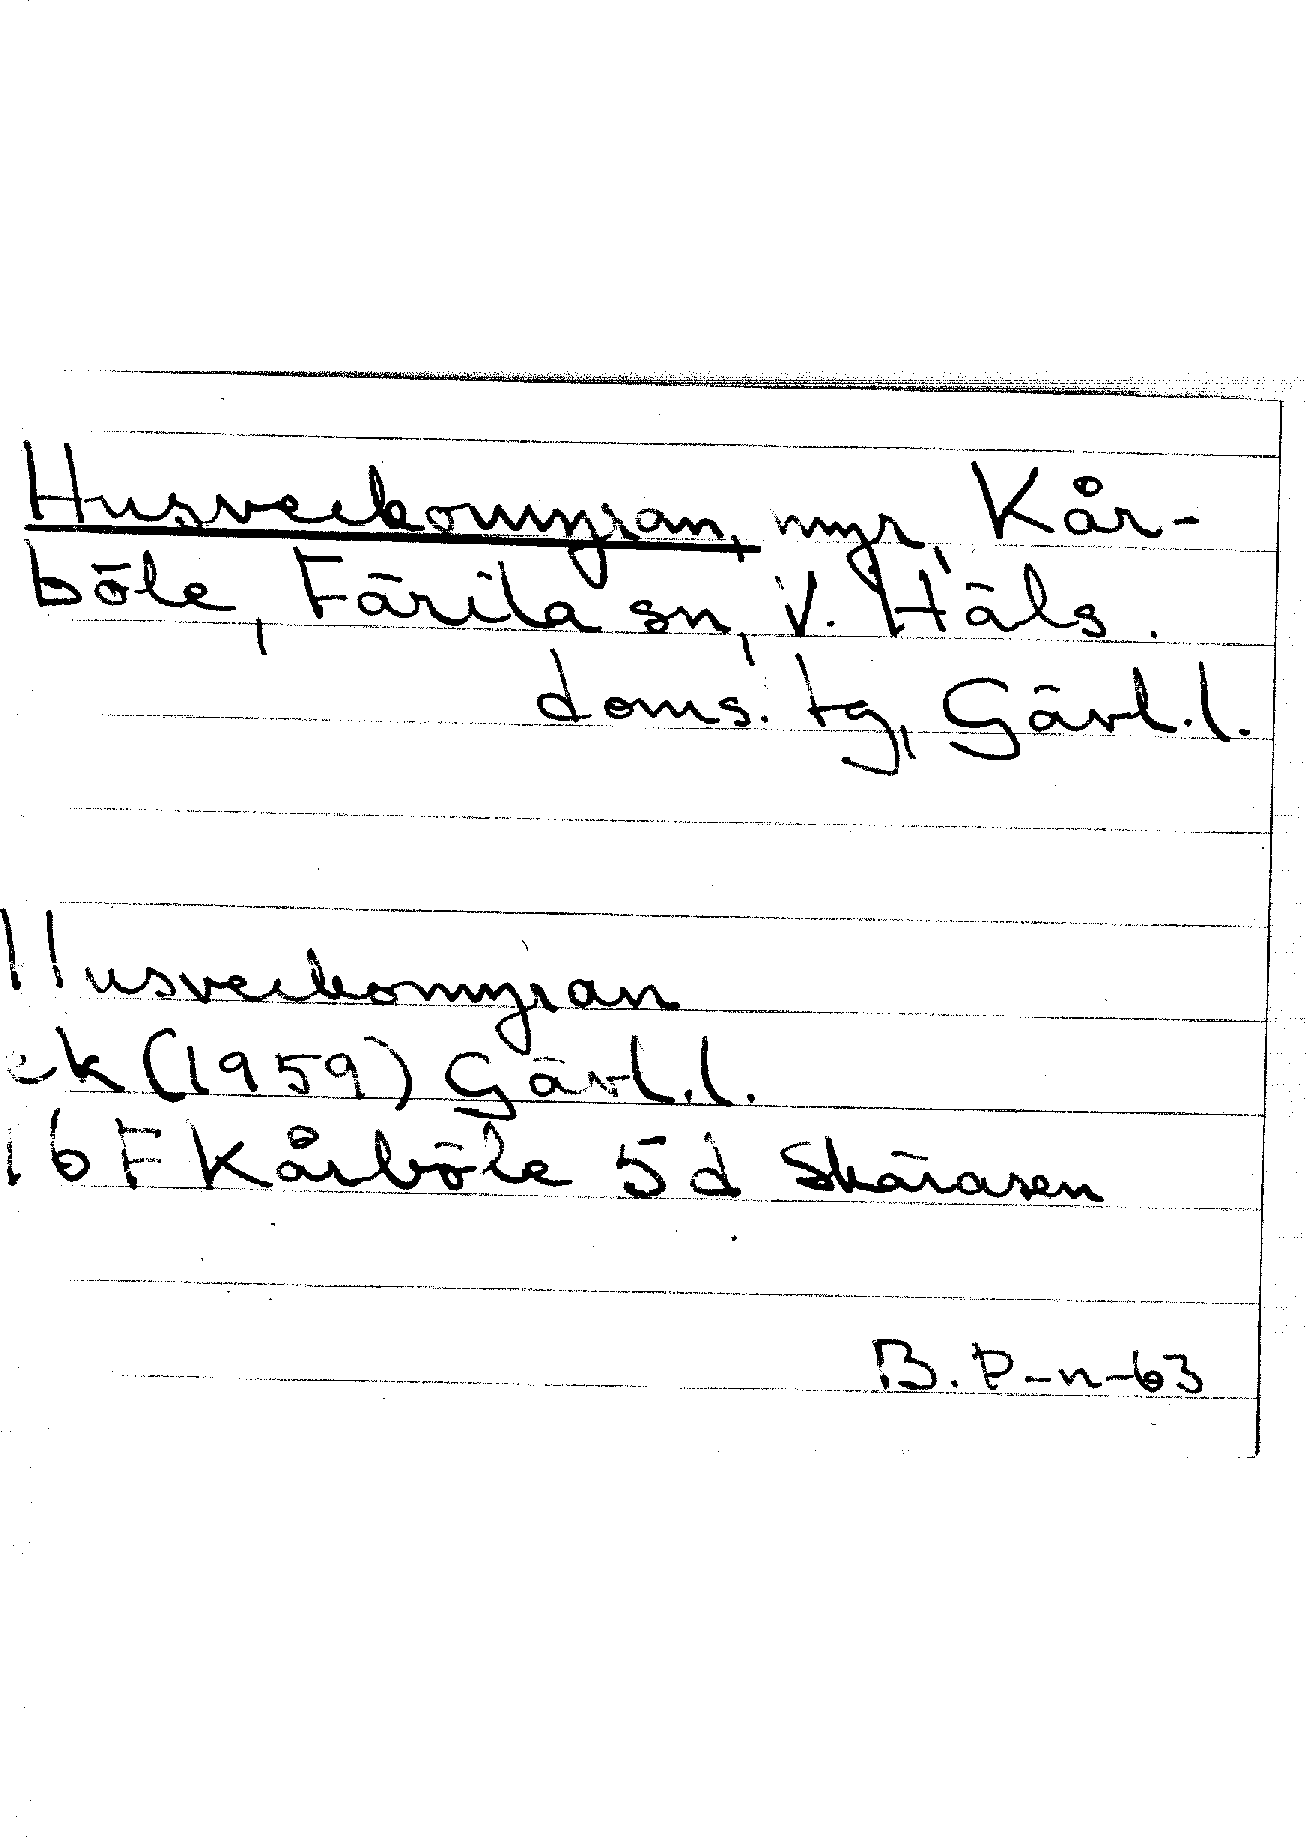 Husveckomyran, myr, Kår-
böle, Färila sn, V. Häls.
doms. tg, Gävl.l.
Husveckomyran
ek (1959) Gävl.l.
16 F Kårböle 5 d Skäråsen
B. P-n-63